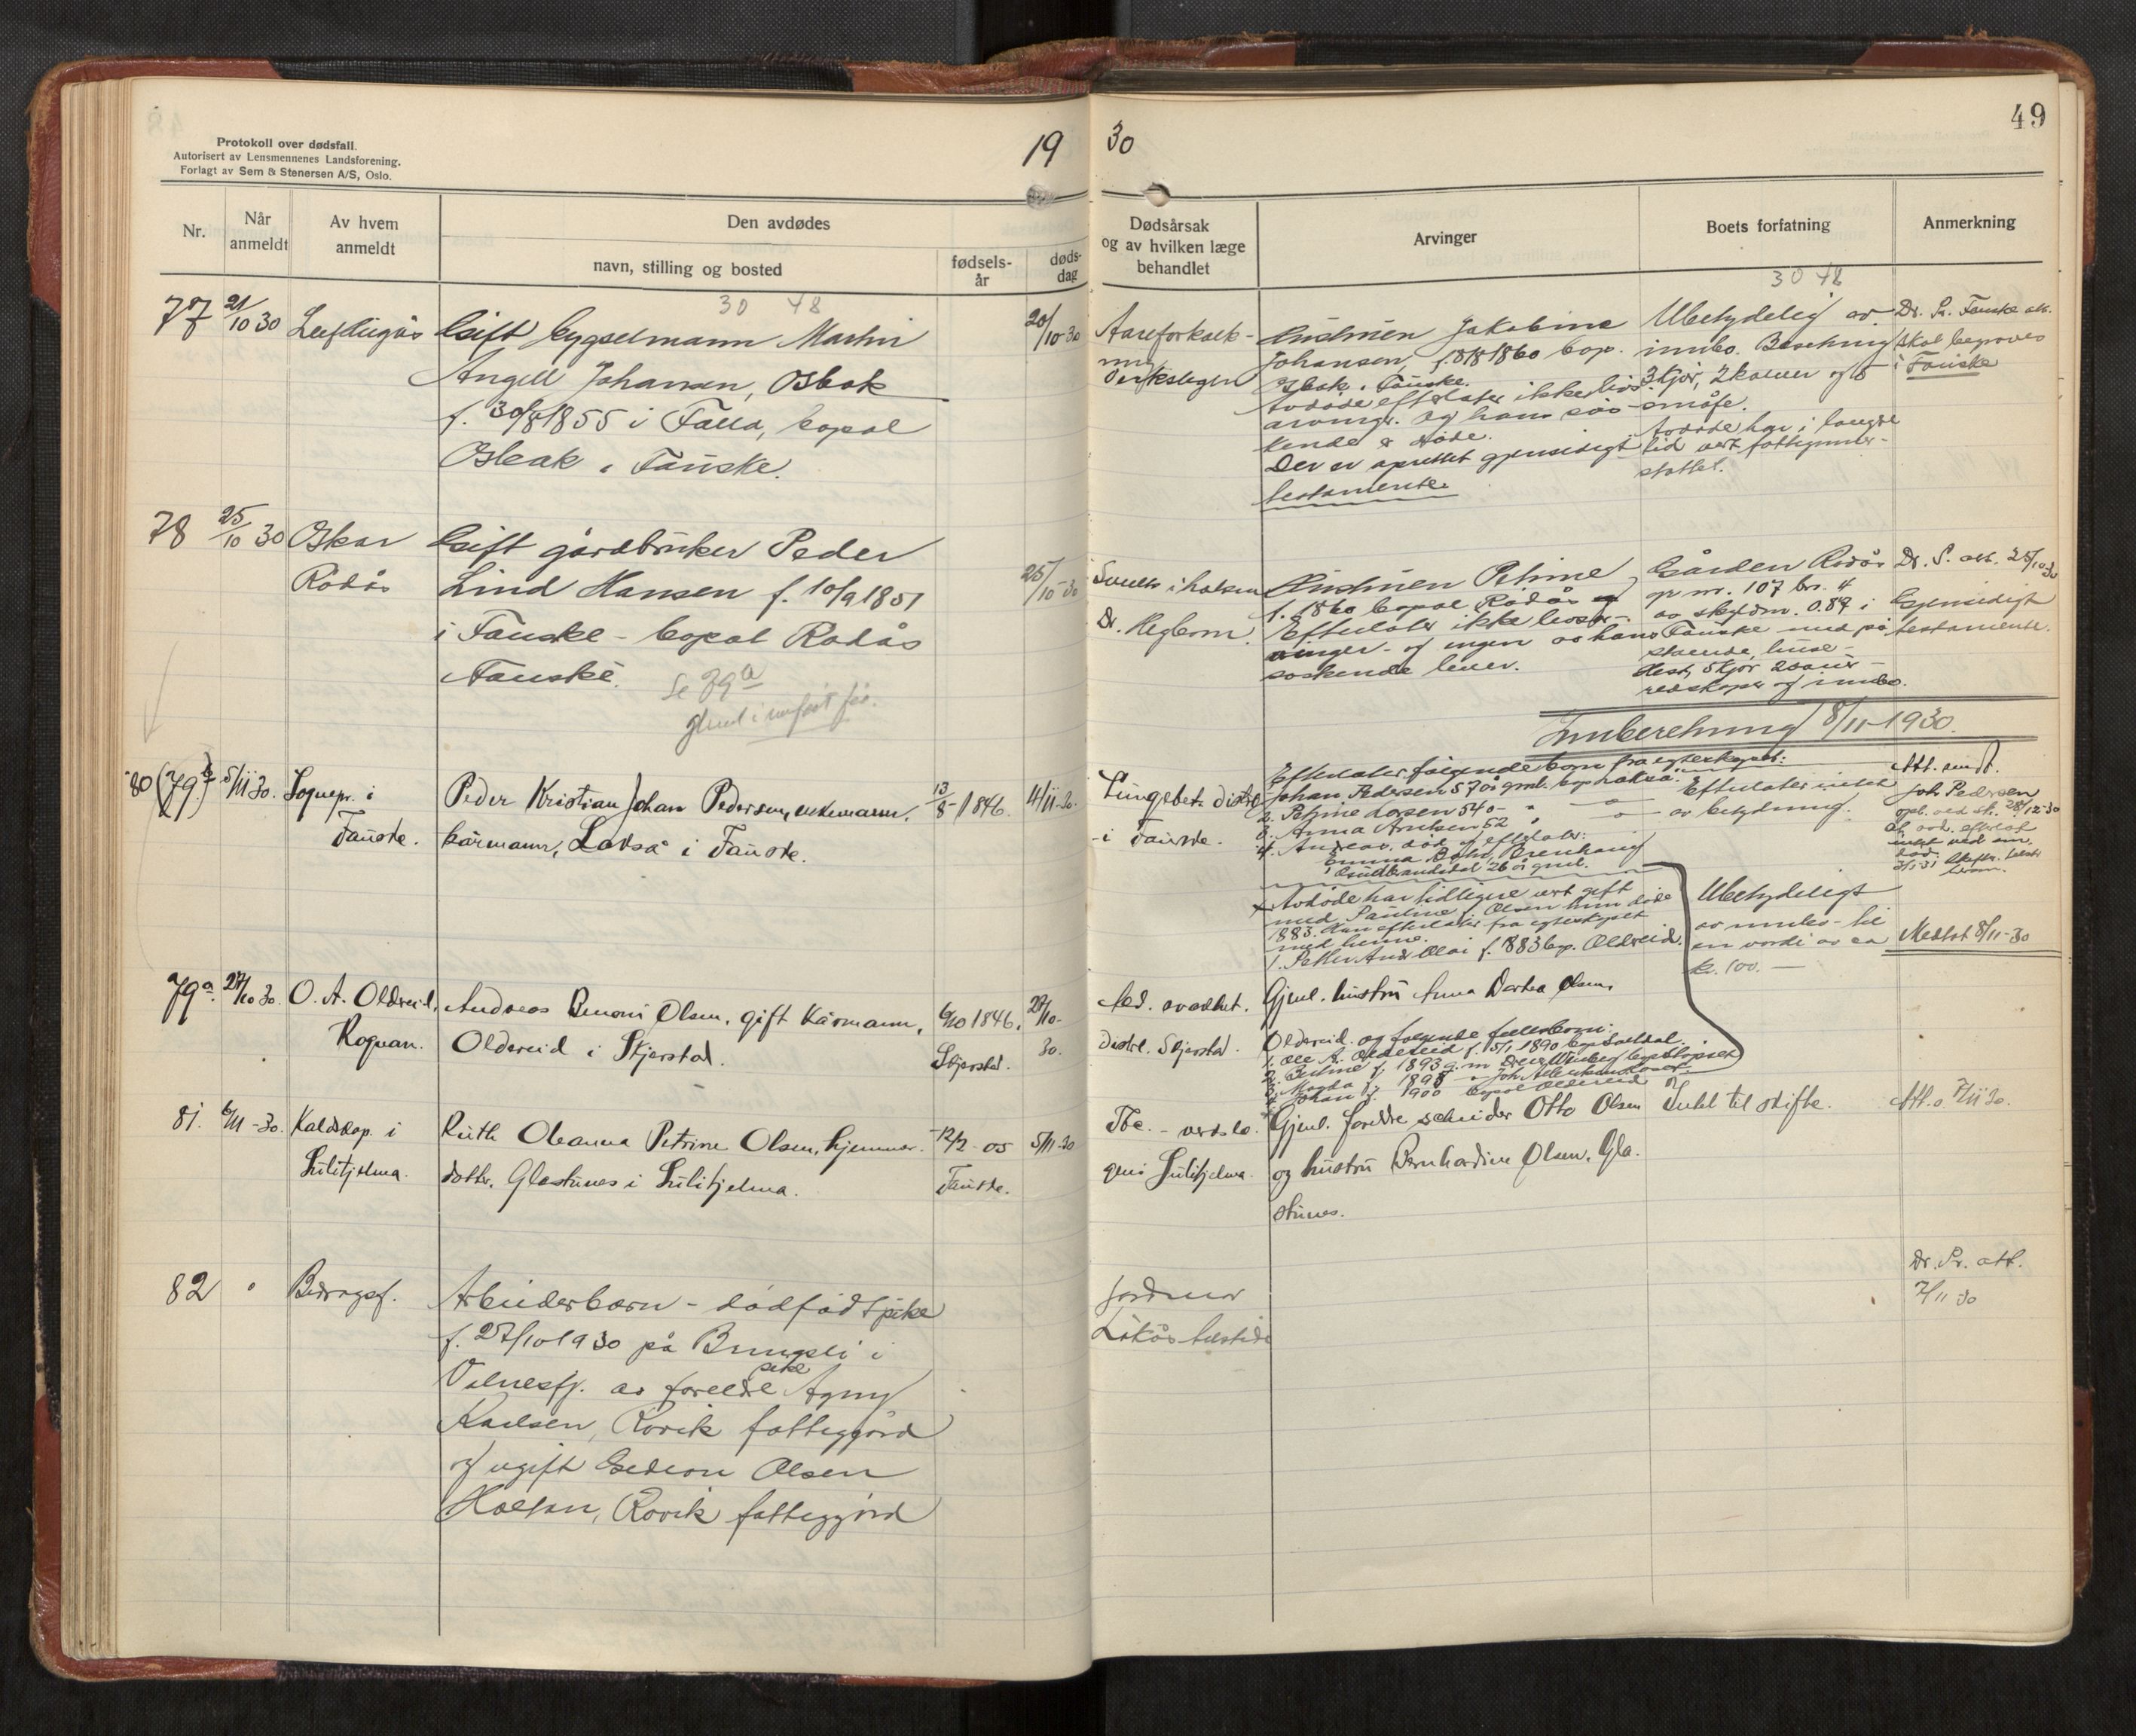 Protokoll over dødsfall.
Autorisert av Lensmennenes Landsforening.
Forlagt av Sem & Stenersen A/S, Oslo.
19 30
49
Nr.
Når anmeldt
Av hvem anmeldt
Den avdødes
navn, stilling og bosted
fødsels-år
døds-dag
Dødsårsak og av hvilken læge behandlet
Arvinger
Boets forfatning
Anmerkning
30 48
30 48
77
21/10 30
Gift bygselmann Martin
Angell Johansen, Osbak
f. 30/8 1855 i Falla, bopæl
Osbak i Fauske.
20/10-30
Aareforkalk-
ning
Verkslegen
Enkefruen Jakobine
Johansen, f. 18/8 1860 bop.
Osbak i Fauske.
Avdøde efterlater ikke livs-
arvinger. Og hans søs-
kende er døde.
Der er oprettet gjensidigt
testamente.
Ubetydelig av
innbo. Besetning
3 kjør, 2 kalver og 8
småfe.
Avdøde har i længre
tid vært fattigunder-
støttet.
Dr. Sr. Fauske att.
skal begraves
i Fauske
78
25/10 30
Oskar
Rødås
Gift gårdbruker Peder
Lind Hansen f. 10/9 1851
i Fauske - bopæl Rødås
Fauske.
Se 79a
25/10-30
Svulst i halsen
Dr. Kegborn.
f. 1860 bopæl Rødås
Efterlater ikke livsar-
vinger - og ingen av hans
søskende lever.
Gården Rødås
gr. nr. 107 br. 4
av skyldm. 0.87 i
Fauske med på
stående huse -
Hest, 5 kjør 2 sauer -
redskaper og innbo.
Dr. S. att. 25/10 30
Gjensidigt
testamente.
Innberetning 8/11-1930.
80 (79b)
5/11 30.
Sognepr. i
Fauske.
Peder Kristian Johan Pedersen, enkemann,
kårmann, Lødså i Fauske.
13/8 1846.
4/11-30.
Lungebet. distr.
i Fauske.
Efterlater følgende born fra egteskapet:
1. Johan Pedersen 57 år gml. bop.
2. Petrine Larsen 54 -
3. Anna Arntsen 52 "
4. Andreas, død og efterlater:
26 år gml.
Avdøde har tidligere vært gift
med Pauline f. Olsen hun døde
1883. Han efterlater fra egteskapet
med henne.
1. Petter Andr. Olai f. 1883 bop. Oldereid.
Efterlater intet
av betydning.
Att. sendt.
Joh. Pedersen
Ubetydeligt
av innbo - til
en verdi av ca
kr. 100. -
Meddt 8/11-30
79a.
27/10 30.
O. A. Oldereid,
Rognan.
Andreas Benoni Olsen, gift kårmann,
Oldereid i Skjerstad.
6/10 1846.
Skjerstad.
27/10-
30.
Ald. svakhet.
distrl. Skjerstad.
Gjenl. hustru Anna Dortea Olsen,
Oldereid og følgende fellesborn:
1. Ole A. Oldereid f. 15/1 1890 bop. Saltdal.
f. 1893 g. m.
3. Magda f. 1898
4. Johan f. 1900 bopæl Oldereid
81.
6/11-30.
Kaldskap. i
Sulitjelma.
Ruth Oleanna Petrine Olsen, hjemmev.
datter, Glastunes i Sulitjelma.
12/2-05
Fauske.
5/11-30
Tbc. - verkslæ-
gen i Sulitjelma.
Gjenl. foreldre arbeider Otto Olsen
og hustru Bernhardine Olsen, Gla-
stunes.
Intet til skifte.
Att. o. 7/11 30.
82
"
Bidragsf.
Arbeiderbarn - dødfødt pike
f. 27/10 1930 på Brungsli i
Valnesfj. av foreldre pike Agny
Karlsen, Røvik fattiggård
og ugift Gedeon Olsen
Holtan, Røvik fattiggård
Jordmor
Dr. Sr. att.
7/11 30